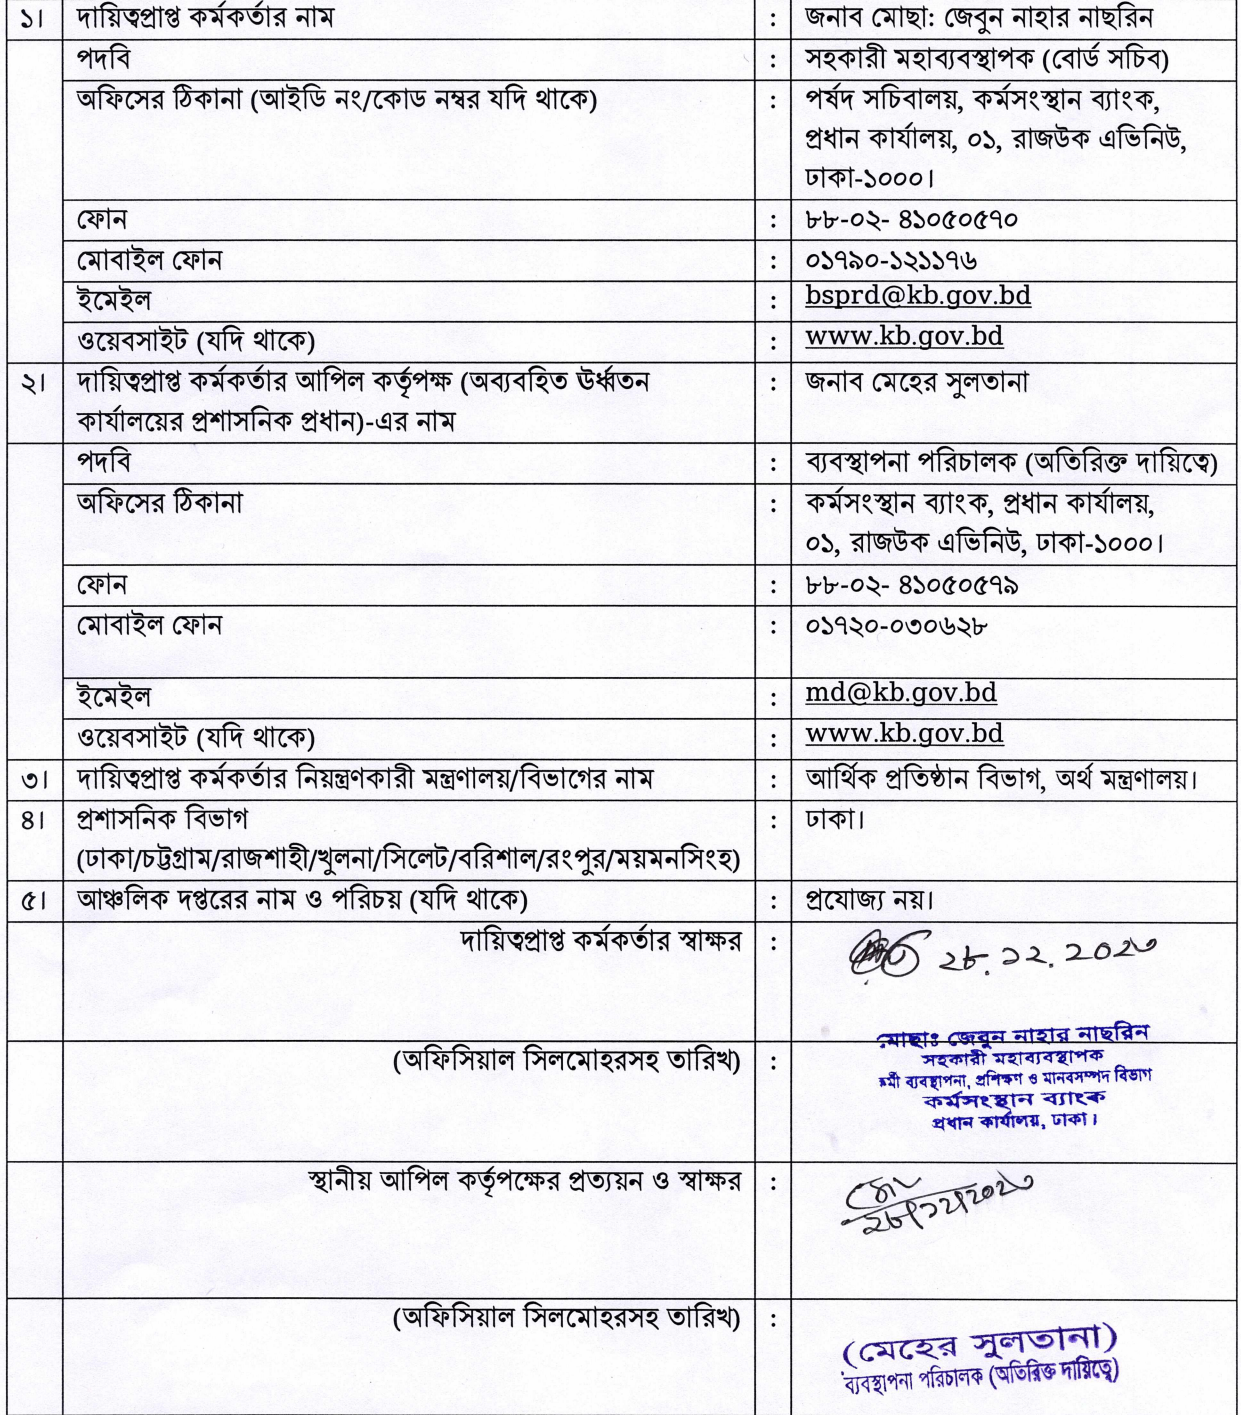 ১। দায়িত্বপ্রাপ্ত কর্মকর্তার নাম : জনাব মোছা: জেবুন নাহার নাছরিন
পদবি : সহকারী মহাব্যবস্থাপক (বোর্ড সচিব)
অফিসের ঠিকানা (আইডি নং/কোড নম্বর যদি থাকে) : পর্ষদ সচিবালয়, কর্মসংস্থান ব্যাংক,
প্রধান কার্যালয়, ০১, রাজউক এভিনিউ,
ঢাকা-১০০০।
ফোন : ৮৮-০২- ৪১০৫০৫৭০
মোবাইল ফোন : ০১৭৯০-১২১১৭৬
ইমেইল : bsprd@kb.gov.bd
ওয়েবসাইট (যদি থাকে) : www.kb.gov.bd
২। দায়িত্বপ্রাপ্ত কর্মকর্তার আপিল কর্তৃপক্ষ (অব্যবহিত ঊর্ধ্বতন : জনাব মেহের সুলতানা
কার্যালয়ের প্রশাসনিক প্রধান)-এর নাম
পদবি : ব্যবস্থাপনা পরিচালক (অতিরিক্ত দায়িত্বে)
অফিসের ঠিকানা : কর্মসংস্থান ব্যাংক, প্রধান কার্যালয়,
০১, রাজউক এভিনিউ, ঢাকা-১০০০।
ফোন : ৮৮-০২- ৪১০৫০৫৭৯
মোবাইল ফোন : ০১৭২০-০৩০৬২৮
ইমেইল : md@kb.gov.bd
ওয়েবসাইট (যদি থাকে) : www.kb.gov.bd
৩। দায়িত্বপ্রাপ্ত কর্মকর্তার নিয়ন্ত্রণকারী মন্ত্রণালয়/বিভাগের নাম : আর্থিক প্রতিষ্ঠান বিভাগ, অর্থ মন্ত্রণালয়।
৪। প্রশাসনিক বিভাগ : ঢাকা।
(ঢাকা/চট্টগ্রাম/রাজশাহী/খুলনা/সিলেট/বরিশাল/রংপুর/ময়মনসিংহ)
৫। আঞ্চলিক দপ্তরের নাম ও পরিচয় (যদি থাকে) : প্রযোজ্য নয়।
দায়িত্বপ্রাপ্ত কর্মকর্তার স্বাক্ষর : ২৮.১২.২০২৩
মোছাঃ জেবুন নাহার নাছরিন
(অফিসিয়াল সিলমোহরসহ তারিখ) : সহকারী মহাব্যবস্থাপক
কর্মী ব্যবস্থাপনা, প্রশিক্ষণ ও মানবসম্পদ বিভাগ
কর্মসংস্থান ব্যাংক
প্রধান কার্যালয়, ঢাকা।
স্থানীয় আপিল কর্তৃপক্ষের প্রত্যয়ন ও স্বাক্ষর :
২৮/১২/২০২৩
(অফিসিয়াল সিলমোহরসহ তারিখ) :
(মেহের সুলতানা)
ব্যবস্থাপনা পরিচালক (অতিরিক্ত দায়িত্বে)